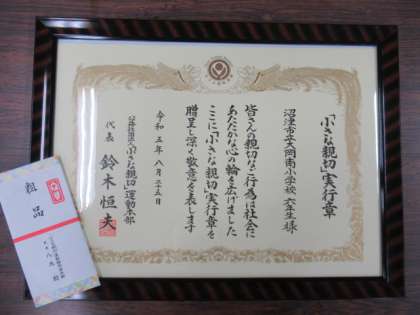 「小さな親切」実行章
沼津市立大岡南小学校 六年生様
皆さんの親切な行為は社会に
あたたかな心の輪を広げました
ここに「小さな親切」実行章を
贈呈し深く敬意を表します
令和五年八月二十五日
公益社団法人「小さな親切」運動本部
代表 鈴木恒夫
粗品